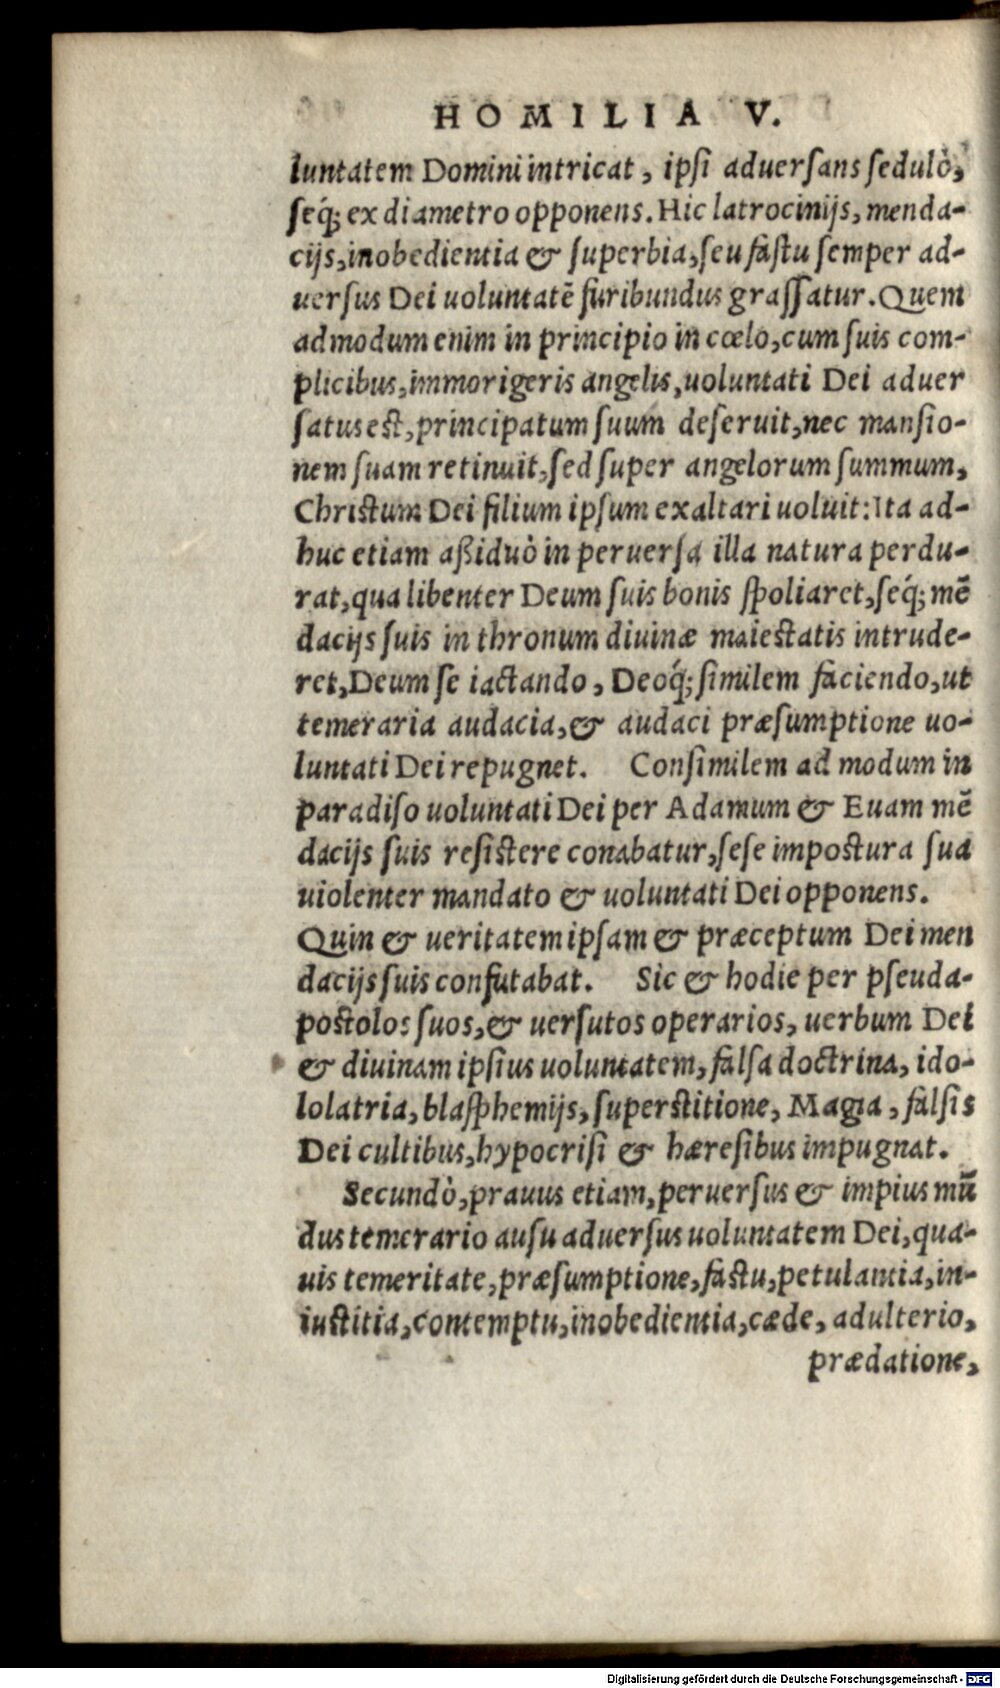 HOMILIA V.
luntatem Domini intricat, ipsi aduersans sedulò,
seq́; ex diametro opponens. Hic latrocinijs, menda-
cijs, inobedientia & superbia, seu fastu semper ad-
uersus Dei uoluntatē furibundus grassatur. Quem
admodum enim in principio in cœlo, cum suis com-
plicibus, immorigeris angelis, uoluntati Dei aduer
satus est, principatum suum deseruit, nec mansio-
nem suam retinuit, sed super angelorum summum,
Christum Dei filium ipsum exaltari uoluit: Ita ad-
huc etiam aßiduò in peruersa illa natura perdu-
rat, qua libenter Deum suis bonis spoliaret, seq́; mē
dacijs suis in thronum diuinæ maiestatis intrude-
ret, Deum se iactando, Deoq́; similem faciendo, ut
temeraria audacia, & audaci præsumptione uo-
luntati Dei repugnet. Consimilem ad modum in
paradiso uoluntati Dei per Adamum & Euam mē
dacijs suis resistere conabatur, sese impostura sua
uiolenter mandato & uoluntati Dei opponens.
Quin & ueritatem ipsam & præceptum Dei men
dacijs suis confutabat. Sic & hodie per pseuda-
postolos suos, & uersutos operarios, uerbum Dei
& diuinam ipsius uoluntatem, falsa doctrina, ido-
lolatria, blasphemijs, superstitione, Magia, falsis
Dei cultibus, hypocrisi & hæresibus impugnat.
Secundò, prauus etiam, peruersus & impius mū
dus temerario ausu aduersus uoluntatem Dei, qua-
uis temeritate, præsumptione, fastu, petulantia, in-
iustitia, contemptu, inobedientia, cæde, adulterio,
prædatione,
Digitalisierung gefördert durch die Deutsche Forschungsgemeinschaft - DFG